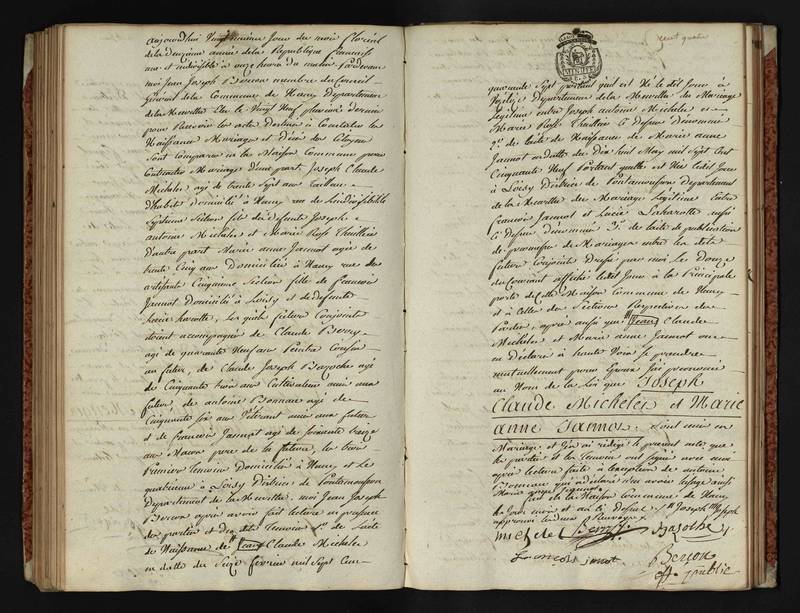 aujourd'hui vingt unième jour du mois floréal
de la deuxième année de la République française
une et indivisible à onze heures du matin pardevant
moi Jean Joseph Berson membre du Conseil
général de la Commune de Nancy Département
de la Meurthe élu le vingt neuf pluviose dernier
pour recevoir les actes destinés à constater les
Naissances Mariages et Décès des Citoyens
sont comparus en la Maison Commune pour
contracter Mariage d'une part Joseph Claude
Micheler agé de trente sept ans tailleur
d'habit domicilié à Nancy rue de
septième section fils du défunt Joseph
antoine Micheler et Marie Rose Thuillier
D'autre part Marie anne Jannot agée de
trente cinq ans Domiciliée à Nancy rue des
artisans Cinquième section fille de francois
Jannot Domicilié à Loisy et de defunte
Lucie, Les quels futurs Conjoints
étoient accompagné de Claude Berny
agé de quarante neuf ans Peintre Cousin
au futur, de Claude Joseph Bazoche agé
de Cinquante trois ans Cultivateur ami au
futur, de antoine Bonnau agé de
Cinquante six ans vétérant ami aux futurs
et de francois Jannot agé de soixante treize
ans Maçon pere de la future, les trois
Premiers temoins Domiciliés à Nancy et Le
quatrième à Loisy District de Pontamousson
Département de la Meurthe. moi Jean Joseph
Berson après avoir fait lecture en présence
des parties et desdits temoins 1° de l'acte
de Naissance de Jean Claude Micheler
en datte du Seize fevrier mil sept cent
cent quatre
quarante sept portant qu'il est Né le dit Jour à
Département de la Meurthe du Mariage
Légitime entre Joseph antoine Micheler et
Marie Rose Thuillier ci dessus dénommés
2° de l'acte de Naissance de Marie anne
Jannot en datte du Dix huit May mil sept cent
Cinquante Neuf Portant quelle est Née ledit Jour
à Loisy District de Pontamousson Département
de la Meurthe du Mariage Légitime Entre
francois Jannot et Lucie aussi
ci dessus dénommés 3° de l'acte de publication
de promesse de Mariage entre les dits
futurs Conjoints Dressé par moi le Douze
du courant affiché ledit Jour à la Principale
porte de cette Maison Commune de Nancy
et à celles des Sections Respectives des
Parties, après aussi que Jean Claude
Micheler et Marie anne Jannot ont
eu Déclaré à haute Voix se prendre
mutuellement pour Epoux j'ai prononcé
au Nom de la Loi que Joseph
Claude Micheler et Marie
anne Jannot. sont unis en
Mariage et j'en ai rédigé le présent acte que
les parties et les temoins ont signé avec moi
après lecture faite à l'exception de antoine
Bonnau qui a déclaré n'en avoir l'usage aussi
Marie anne Jannot
fait en la Maison Commune de Nancy
les Jour mois et an ci dessus. Joseph
approuvé
michelé Berny Bazoche
francois janot
Berson
off. public